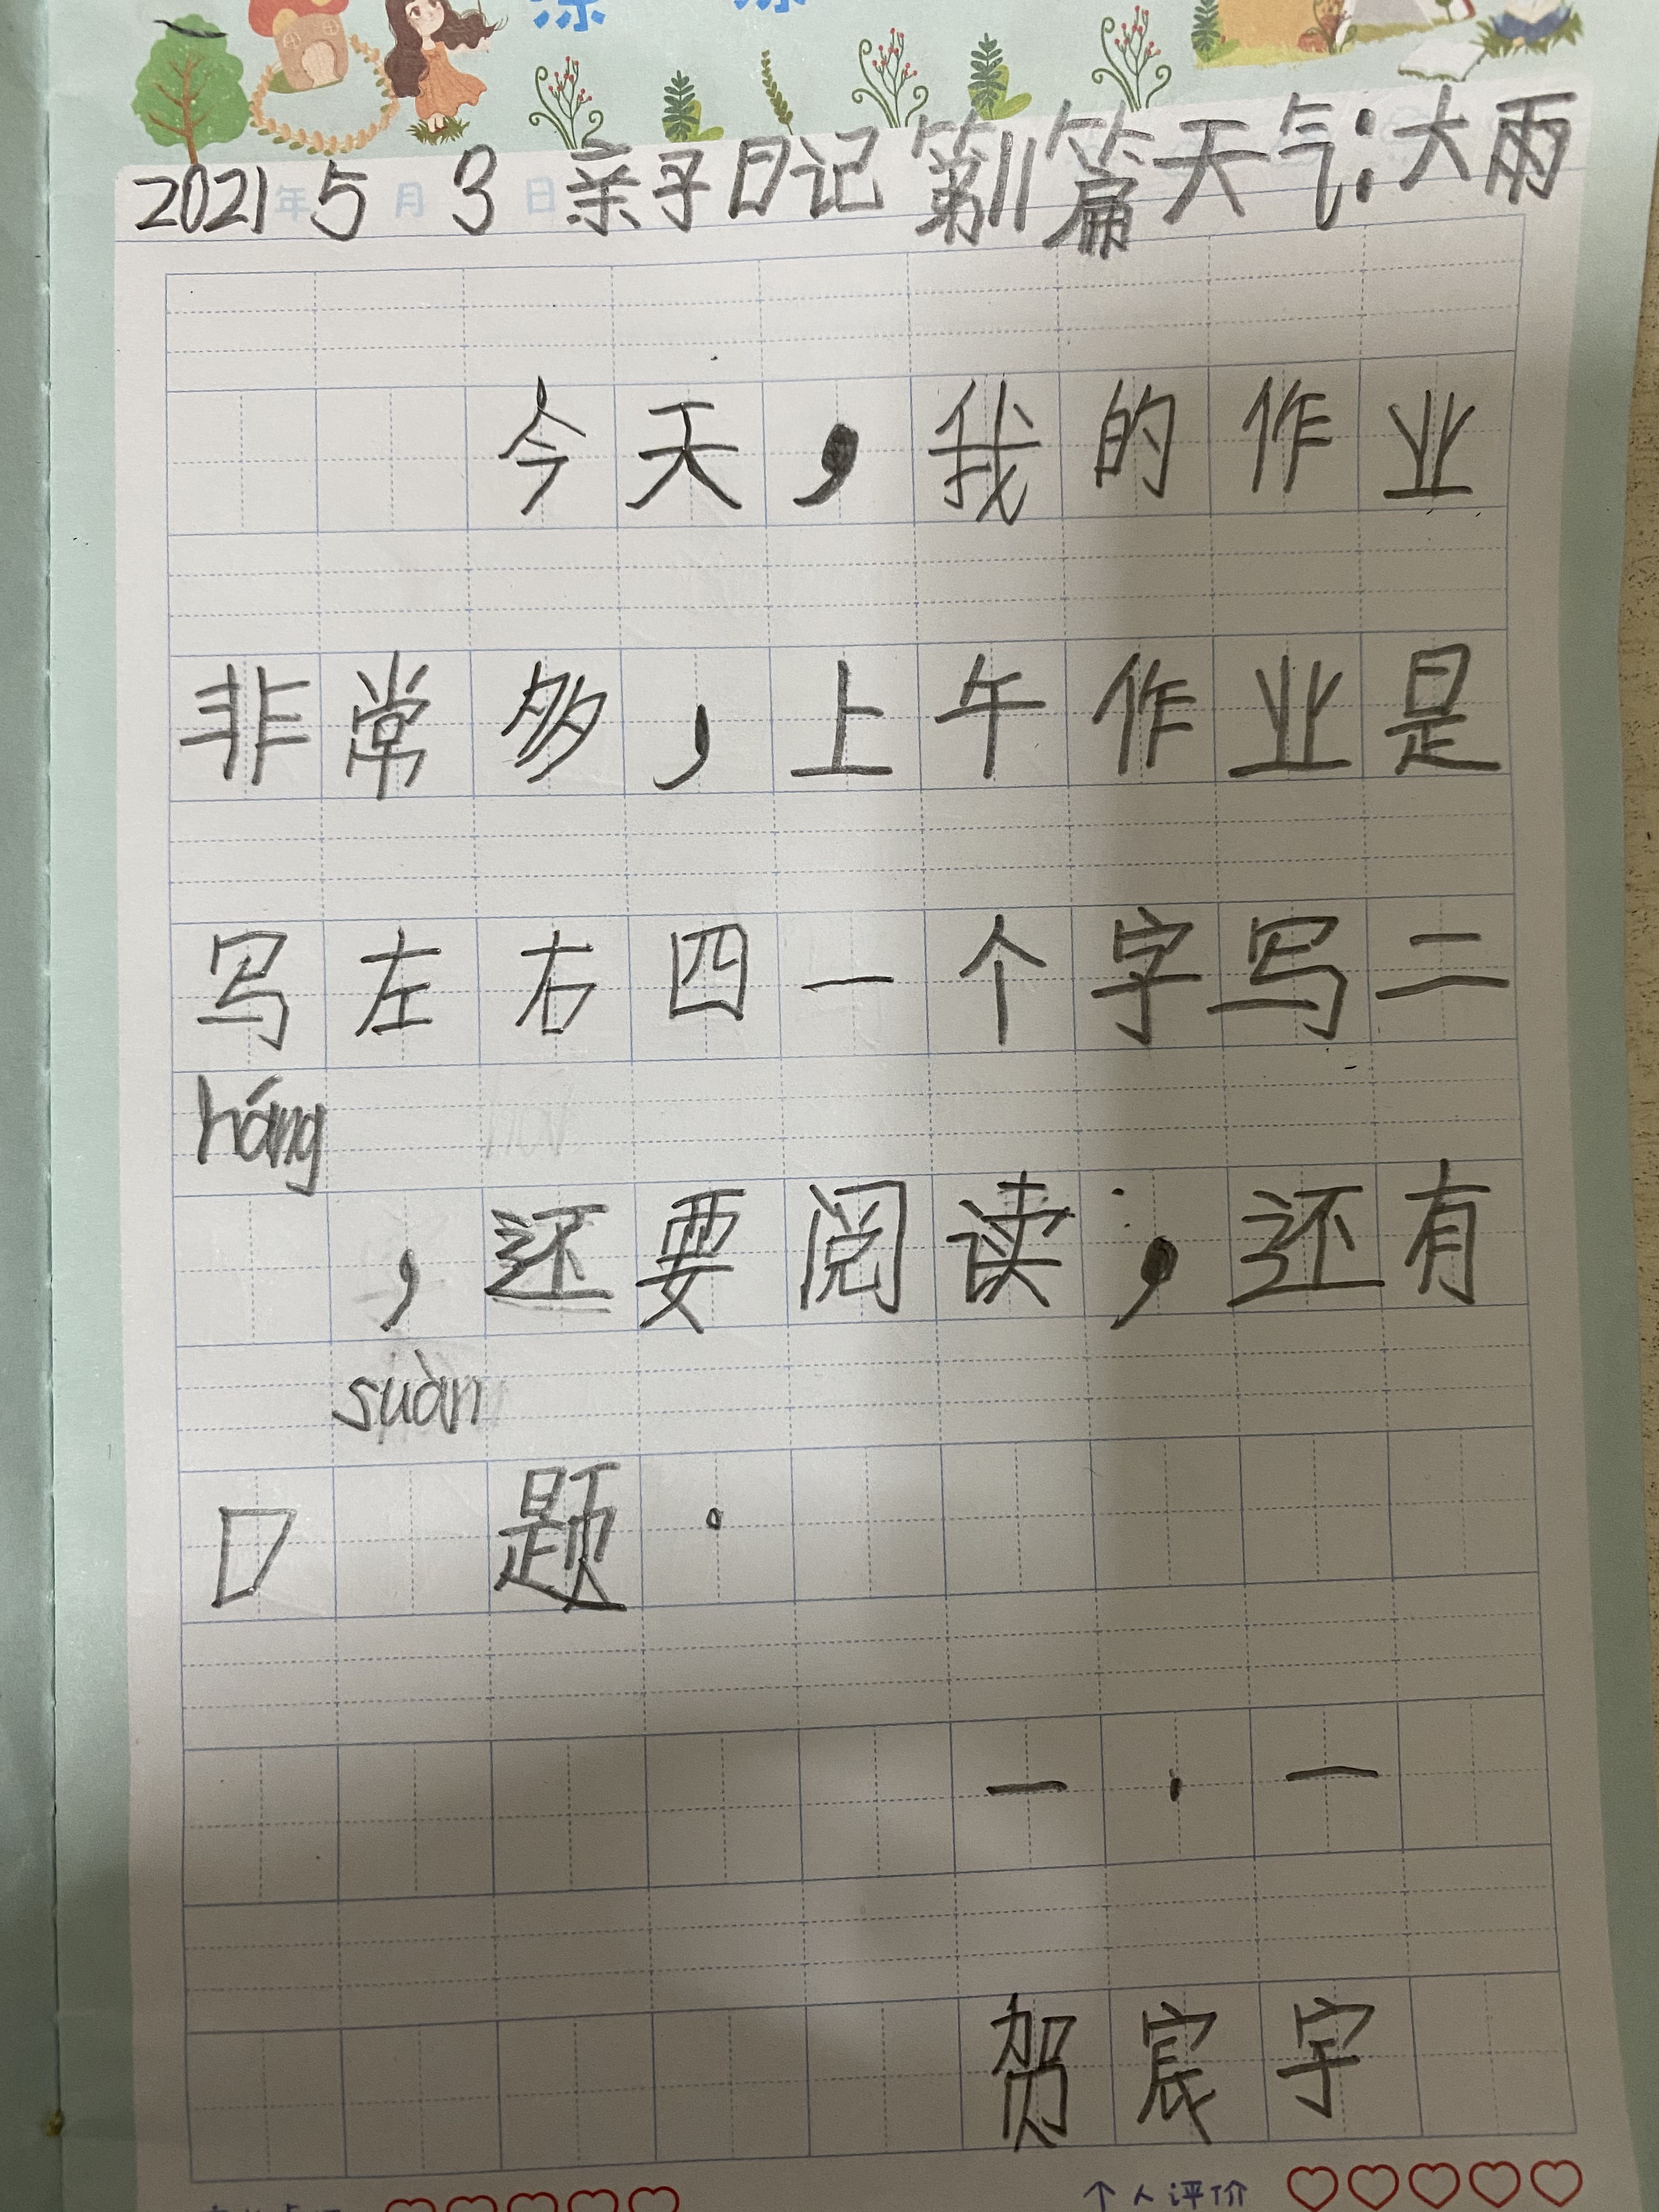 2021年5月3日 亲子日记 第11篇 天气:大雨
今天,我的作业
非常多,上午作业是
写左右四一个字写二
háng
,还要阅读;还有
suàn
口 题。
一·一
贺宸宇
个人评价